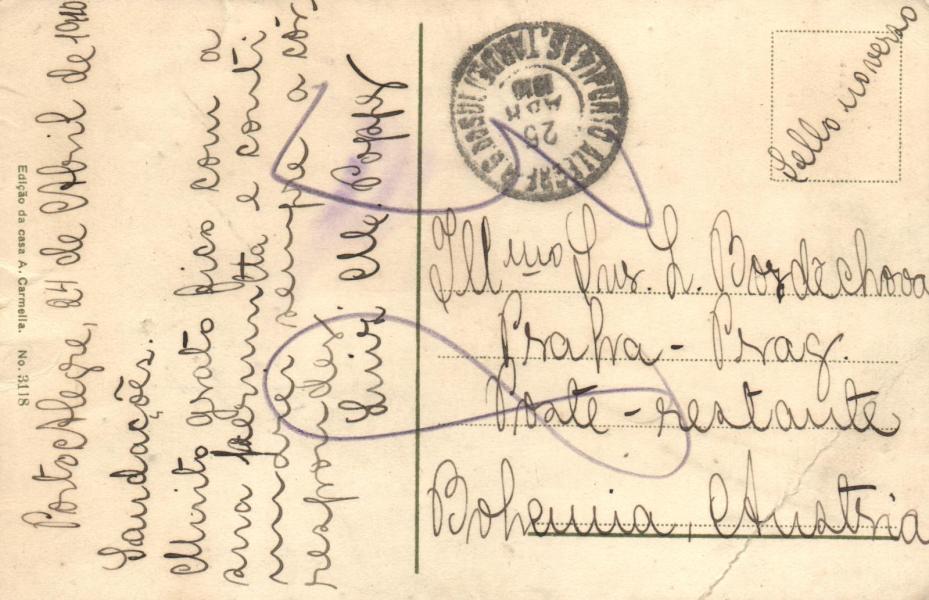 Porto Alegre, 24 de Abril de 1910
Saudações.
Muito grato fico com a
sua permutta e conti
nuarei sempre a cor
responder
Luiz Me. Poppe
Edição da casa A. Carmella. No. 3118
PORTO ALEGRE
R. G. DO SUL
TARDE
25
ABR
1910
Sello no verso
Illmo Snr. L. Bozdechova
Praha - Prag.
Poste-restante
Bohemia, Austria